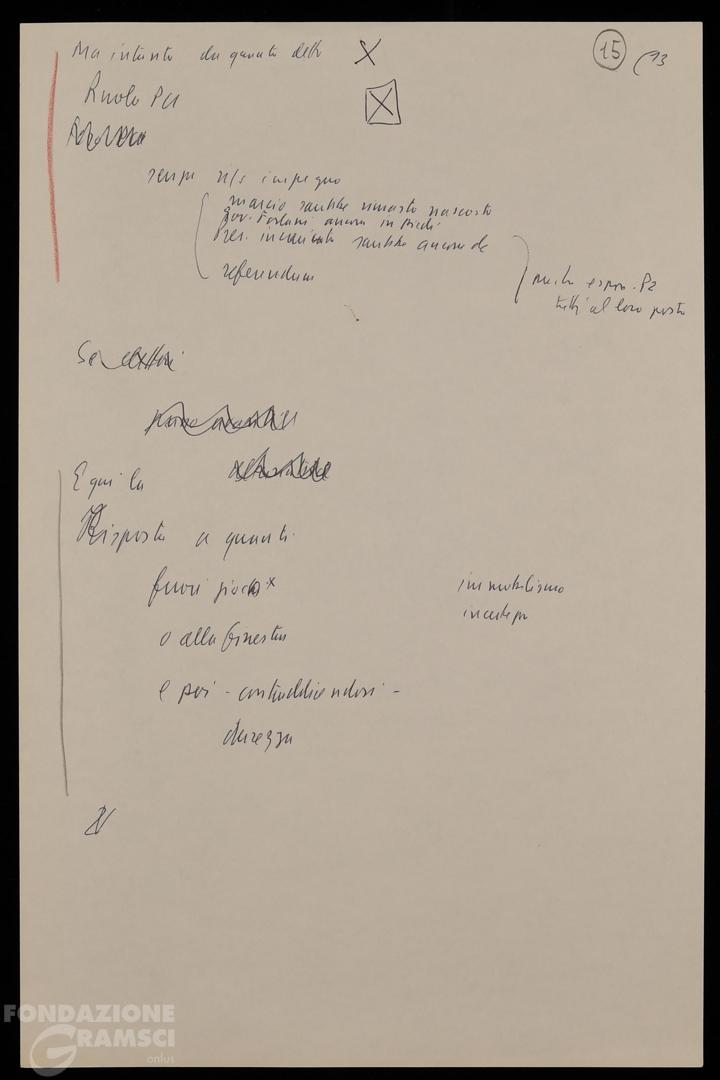 Ma intanto da quanto detto X
15 13
Ruolo PCI
X
sempre n/s impegno
marcio sarebbe rimasto nascosto
gov. Forlani ancora in piedi
Pres. incaricato sarebbe ancora dc
referendum
espon. P2
tutti al loro posto
Se
E qui la
Risposta a quanti
fuori gioco x
immobilismo
o alla finestra
e poi - contraddicendosi -
durezza
FONDAZIONE
GRAMSCI
onlus